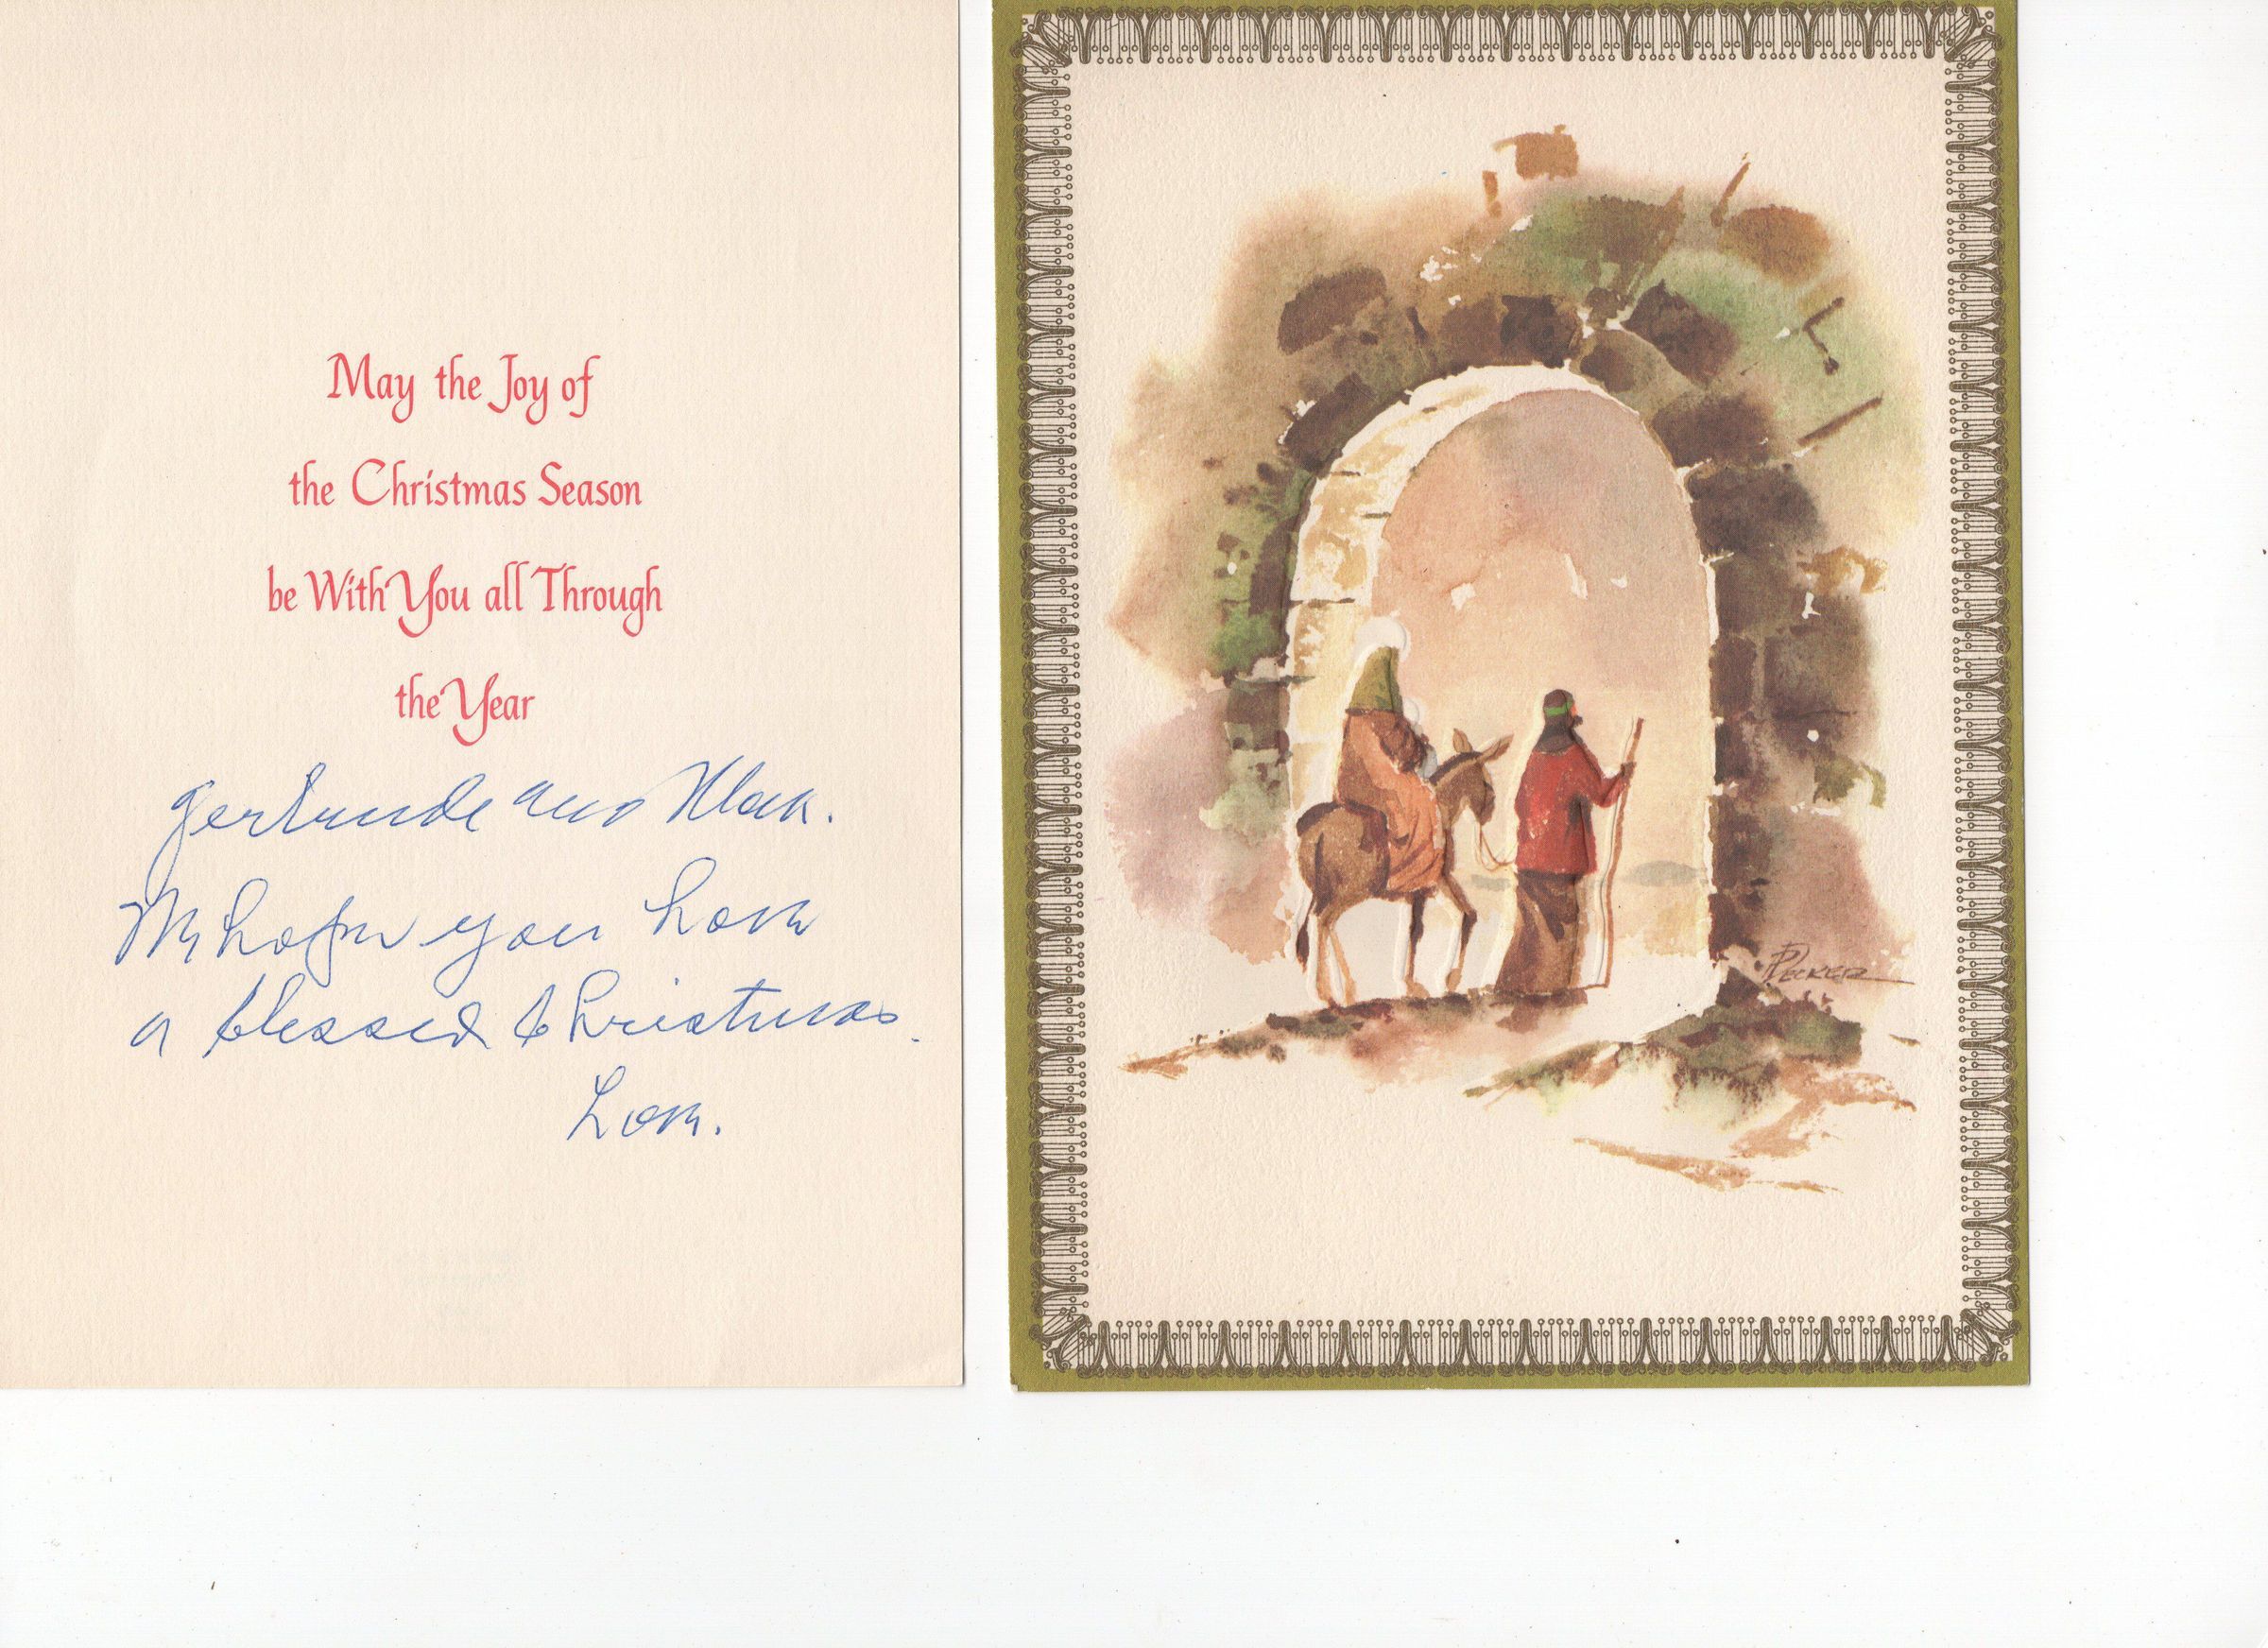 May the Joy of
the Christmas Season
be With You all Through
the Year
Gertrude and Alan.
We hope you have
a blessed Christmas.
Love.
PLECKER